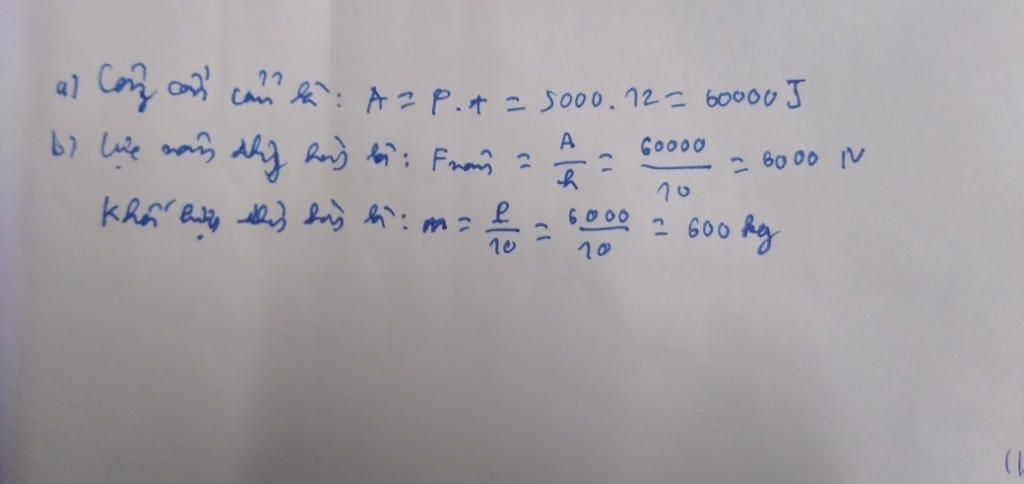 a) Công của cẩu là: A = P.t = 5000.12 = 60000 J
b) Lực nâng thùng hàng là: Fnâng = A/h = 60000/10 = 6000 N
Khối lượng thùng hàng là: m = P/10 = 6000/10 = 600 kg
(